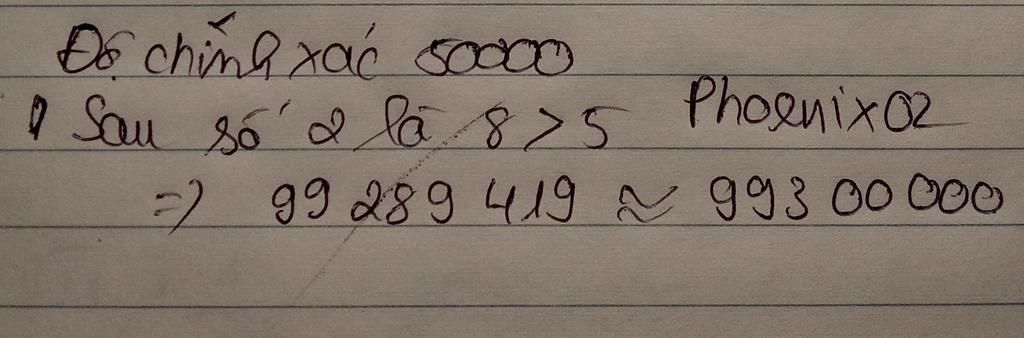 Độ chính xác 50000
Sau số 2 là 8 > 5 Phoenix02
=> 99 289 419 ≈ 99300 000